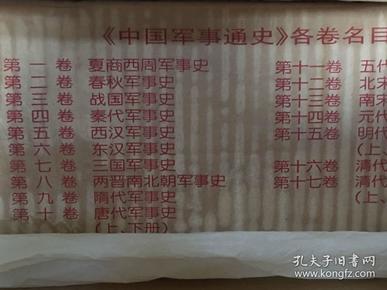 《中国军事通史》各卷名目
第一卷 夏商西周军事史
第二卷 春秋军事史
第三卷 战国军事史
第四卷 秦代军事史
第五卷 西汉军事史
第六卷 东汉军事史
第七卷 三国军事史
第八卷 两晋南北朝军事史
第九卷 隋代军事史
第十卷 唐代军事史
(上、下册)
第十一卷 五代
第十二卷 北宋
第十三卷 南宋
第十四卷 元代
第十五卷 明代
(上、
第十六卷 清代
第十七卷 清代
(上、
孔夫子旧书网
www.kongfz.com